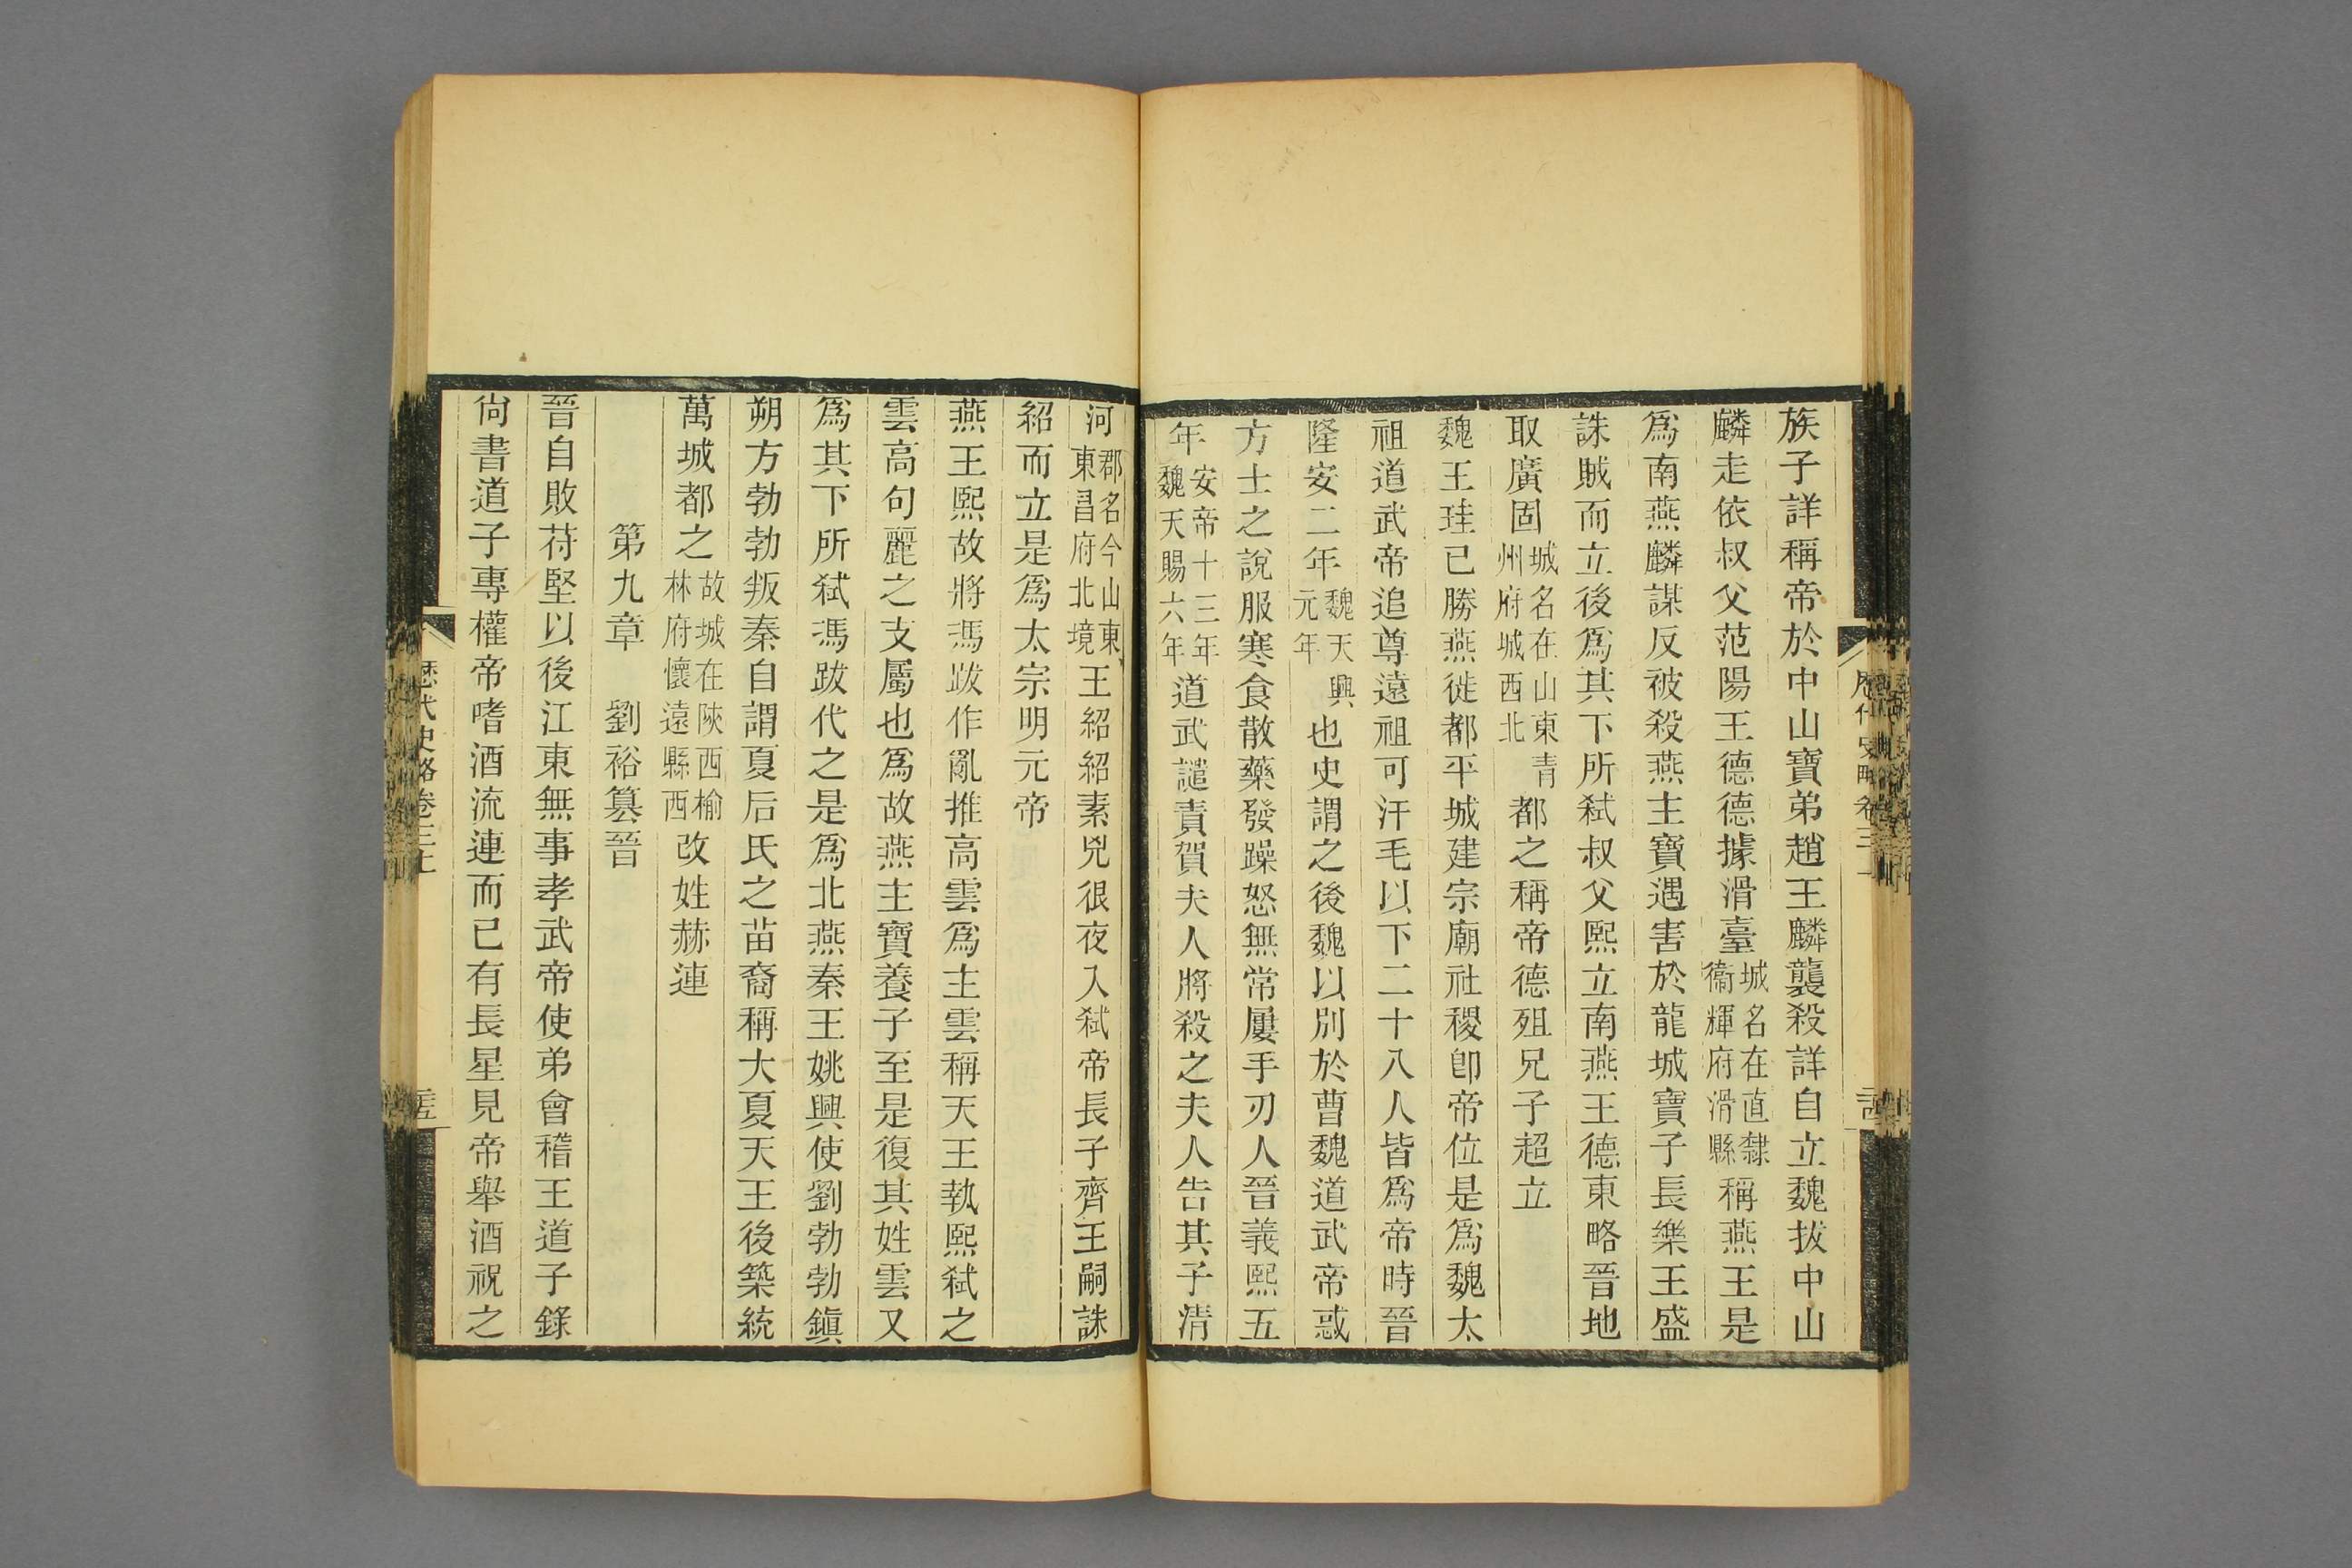 族子詳稱帝於中山寶弟趙王麟襲殺詳自立魏拔中山
麟走依叔父范陽王德德據滑臺城名在直隸衞輝府滑縣稱燕王是
爲南燕麟謀反被殺燕主寶遇害於龍城寶子長樂王盛
誅賊而立後爲其下所弒叔父熙立南燕王德東略晉地
取廣固城名在山東青州府城西北都之稱帝德殂兄子超立
魏王珪已勝燕徙都平城建宗廟社稷卽帝位是爲魏太
祖道武帝追尊遠祖可汗毛以下二十八人皆爲帝時晉
隆安二年魏天興元年也史謂之後魏以別於曹魏道武帝惑
方士之說服寒食散藥發躁怒無常屢手刃人晉義熙五
年安帝十三年魏天賜六年道武譴責賀夫人將殺之夫人告其子清
河郡名今山東東昌府北境王紹紹素兇很夜入弒帝長子齊王嗣誅
紹而立是爲太宗明元帝
燕王熙故將馮跋作亂推高雲爲主雲稱天王執熙弒之
雲高句麗之支屬也爲故燕主寶養子至是復其姓雲又
爲其下所弒馮跋代之是爲北燕秦王姚興使劉勃勃鎭
朔方勃勃叛秦自謂夏后氏之苗裔稱大夏天王後築統
萬城都之故城在陝西榆林府懷遠縣西改姓赫連
第九章　劉裕篡晉
晉自敗苻堅以後江東無事孝武帝使弟會稽王道子錄
尙書道子專權帝嗜酒流連而已有長星見帝舉酒祝之
歷代史略卷三上